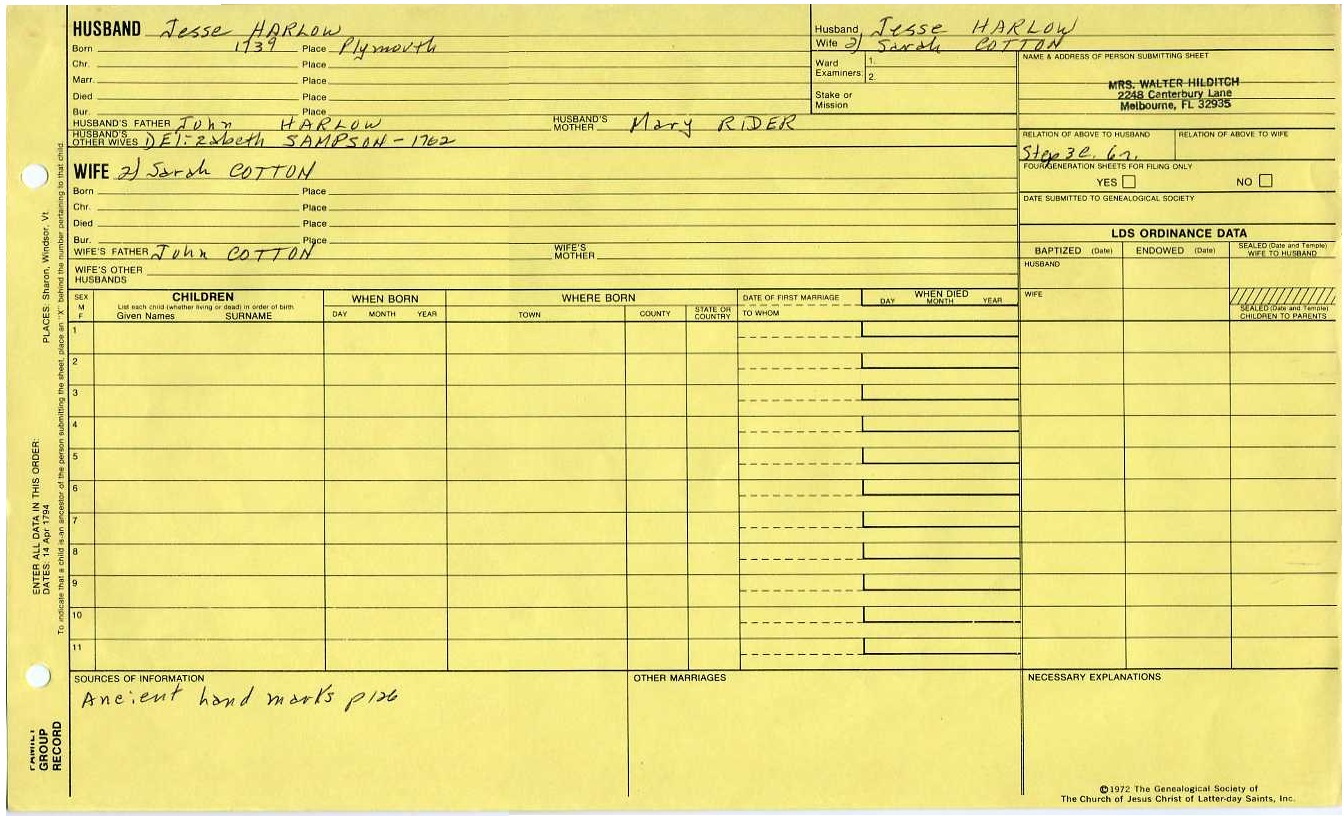 HUSBAND Jesse HARLOW
Born 1739 Place Plymouth
Chr. Place
Marr. Place
Died Place
Bur. Place
HUSBAND'S FATHER John HARLOW HUSBAND'S MOTHER Mary RIDER
HUSBAND'S OTHER WIVES 1) Elizabeth SAMPSON - 1762
WIFE 2) Sarah COTTON
Born Place
Chr. Place
Died Place
Bur. Place
WIFE'S FATHER John COTTON WIFE'S MOTHER
WIFE'S OTHER HUSBANDS
Husband Jesse HARLOW
Wife 2) Sarah COTTON
Ward Examiners: 1.
2.
Stake or Mission
NAME & ADDRESS OF PERSON SUBMITTING SHEET
MRS. WALTER HILDITCH
2248 Canterbury Lane
Melbourne, FL 32935
RELATION OF ABOVE TO HUSBAND RELATION OF ABOVE TO WIFE
Step 3c. 6r.
FOUR GENERATION SHEETS FOR FILING ONLY
YES NO
DATE SUBMITTED TO GENEALOGICAL SOCIETY
LDS ORDINANCE DATA
BAPTIZED (Date) ENDOWED (Date) SEALED (Date and Temple) WIFE TO HUSBAND
HUSBAND
WIFE
SEALED (Date and Temple) CHILDREN TO PARENTS
SEX M F
CHILDREN
List each child (whether living or dead) in order of birth
Given Names SURNAME
WHEN BORN
DAY MONTH YEAR
WHERE BORN
TOWN COUNTY STATE OR COUNTRY
DATE OF FIRST MARRIAGE
TO WHOM
WHEN DIED
DAY MONTH YEAR
1
2
3
4
5
6
7
8
9
10
11
SOURCES OF INFORMATION
Ancient hand marks p126
OTHER MARRIAGES
NECESSARY EXPLANATIONS
©1972 The Genealogical Society of
The Church of Jesus Christ of Latter-day Saints, Inc.
PLACES: Sharon, Windsor, Vt.
To indicate that a child is an ancestor of the person submitting the sheet, place an "X" behind the number pertaining to that child.
ENTER ALL DATA IN THIS ORDER:
DATES: 14 Apr 1794
FAMILY
GROUP
RECORD